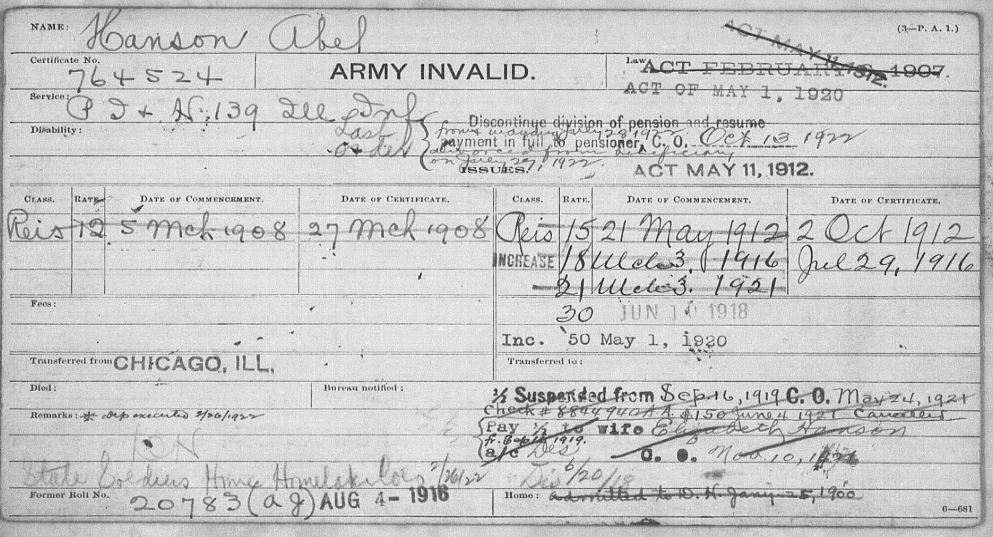 NAME: Hanson Abel (3—P. A. 1.)
ACT MAY 11, 1912.
Certificate No. 764524
ARMY INVALID.
Law: ACT FEBRUARY 6, 1907.
ACT OF MAY 1, 1920
Service: P I & H, 139 Ill Inf
Disability:
Last Order
Discontinue division of pension and resume
from including July 28 1922
payment in full to pensioner, C. O. Oct 13 1922
divorced from beneficiary
on July 29, 1922.
ISSUES. ACT MAY 11, 1912.
CLASS. RATE. DATE OF COMMENCEMENT. DATE OF CERTIFICATE. CLASS. RATE. DATE OF COMMENCEMENT. DATE OF CERTIFICATE.
Reis 12 5 Mch 1908 27 Mch 1908 Reis 15 21 May 1912 2 Oct 1912
INCREASE 18 Mch 3. 1916 Jul 29, 1916
21 Mch 3. 1921
Fees: 30 JUN 10 1918
Inc. 50 May 1, 1920
Transferred from CHICAGO, ILL. Transferred to:
Died: Bureau notified:
½ Suspended from Sep. 16, 1919 C. O. May 24, 1921
Remarks: * dep executed 2/20/1922
Check # 8844940 A A $150 June 4 1921 Cancelled
Pay ½ to wife Elizabeth Hanson
fr. Sep 16 1919.
a/c Des C. O. Nov. 10, 1921
State Soldiers Home Homelake Colo 2/26/22
Dis 6/20/18
Former Roll No. 20783 (a g) AUG 4 - 1916
Home: admitted to D. H. Jany 25, 1900
6—681